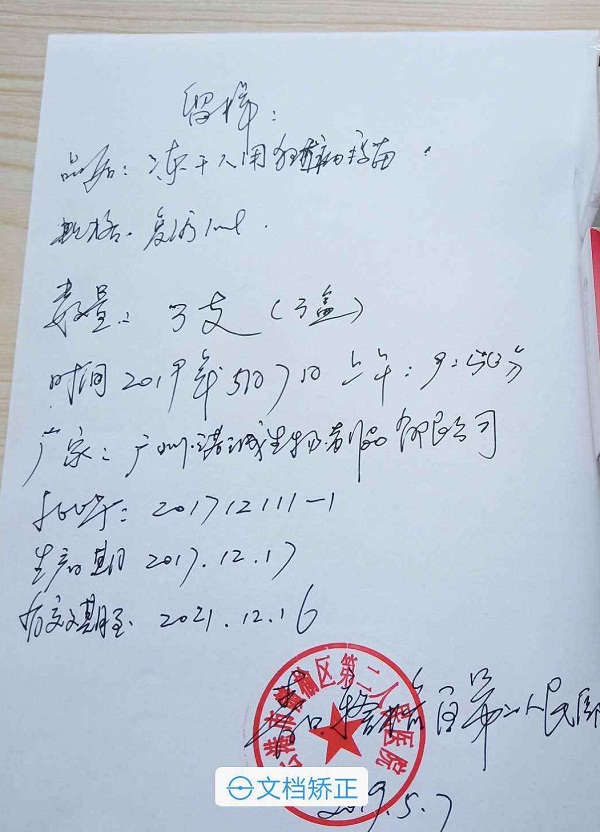 留样：
品名：冻干人用狂犬病疫苗
规格：复溶1ml.
数量：3支（3盒）
时间 2019年5月7日 上午：9：50分
厂家：广州诺诚生物制品有限公司
批号：201712111-1
生产日期 2017.12.17
有效期至 2021.12.16
赣榆区第二人民医院
第二人民医
2019.5.7
文档矫正